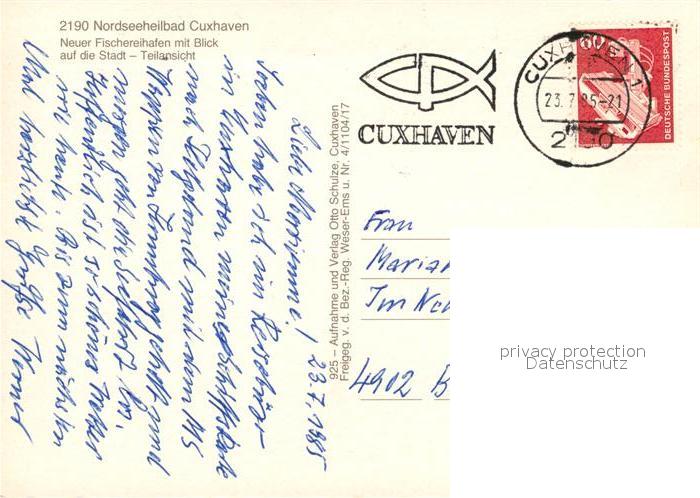 2190 Nordseeheilbad Cuxhaven
Neuer Fischereihafen mit Blick
auf die Stadt – Teilansicht
CUXHAVEN
CUXHAVEN 1
23.7.85-21
2190
60
DEUTSCHE BUNDESPOST
925 – Aufnahme und Verlag Otto Schulze, Cuxhaven
Freigeg. v. d. Bez.-Reg. Weser-Ems u. Nr. 4/1104/17
23.7.1985
Liebe Marianne!
Soeben habe ich im Reisebüro
in Cuxhaven meine Schiffskarte
nach Helgoland mit dem MS
Wappen von Hamburg geholt und
morgen geht die Seefahrt los.
Hoffentlich ist so schönes Wetter
wie heute. Bis zum nächsten
Mal herzlichst Grüße Werner
Frau
Marian
Im
4902 B
privacy protection
Datenschutz